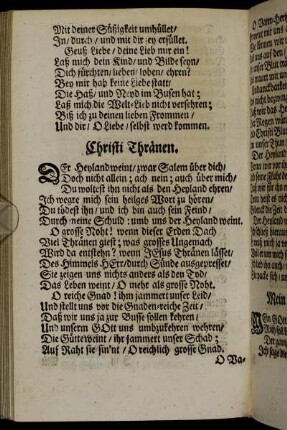 Mit deiner Süßigkeit umhüllet/
In/ durch/ und mit dir ey erfüllet.
Geuß Liebe/ deine Lieb mir ein!
Laß mich dein Kind/ und Bilde seyn/
Dich fürchten/ lieben/ loben/ ehren?
Bey mir hab keine Liebe statt/
Die Haß/ und Neyd im Busen hat;
Laß mich die Welt-Lieb nicht versehren;
Biß ich zu deinen lieben Frommen/
Und dir/ O Liebe/ selbst werd kommen.
Christi Thränen.
DEr Heyland weint/ zwar Salem über dich/
Doch nicht allein; ach nein; auch über mich/
Du woltest ihn nicht als den Heyland ehren/
Ich wegre mich sein heilges Wort zu hören/
Du tödest ihn/ und ich bin auch sein Feind/
Durch meine Schuld: umb uns der Heyland weint.
O grosse Noht! wenn dieser Erden Dach
Viel Thränen giest; was grosses Ungemach
Wird da entstehn? wenn JESus Thränen lässet/
Des Himmels HErr/ durch Sünde ausgepresset/
Sie zeigen uns nichts anders als den Tod/
Das Leben weint/ O mehr als grosse Noht.
O reiche Gnad! ihm jammert unser Leid/
Und stellt uns vor die Gnaden-reiche Zeit/
Daß wir uns ja zur Busse sollen kehren/
Und unserm GOtt uns umbzukehren wehren/
Die Gütte weint/ ihr jammert unser Schad;
Auf Raht sie sinnt/ O reichlich grosse Gnad.
O Va-